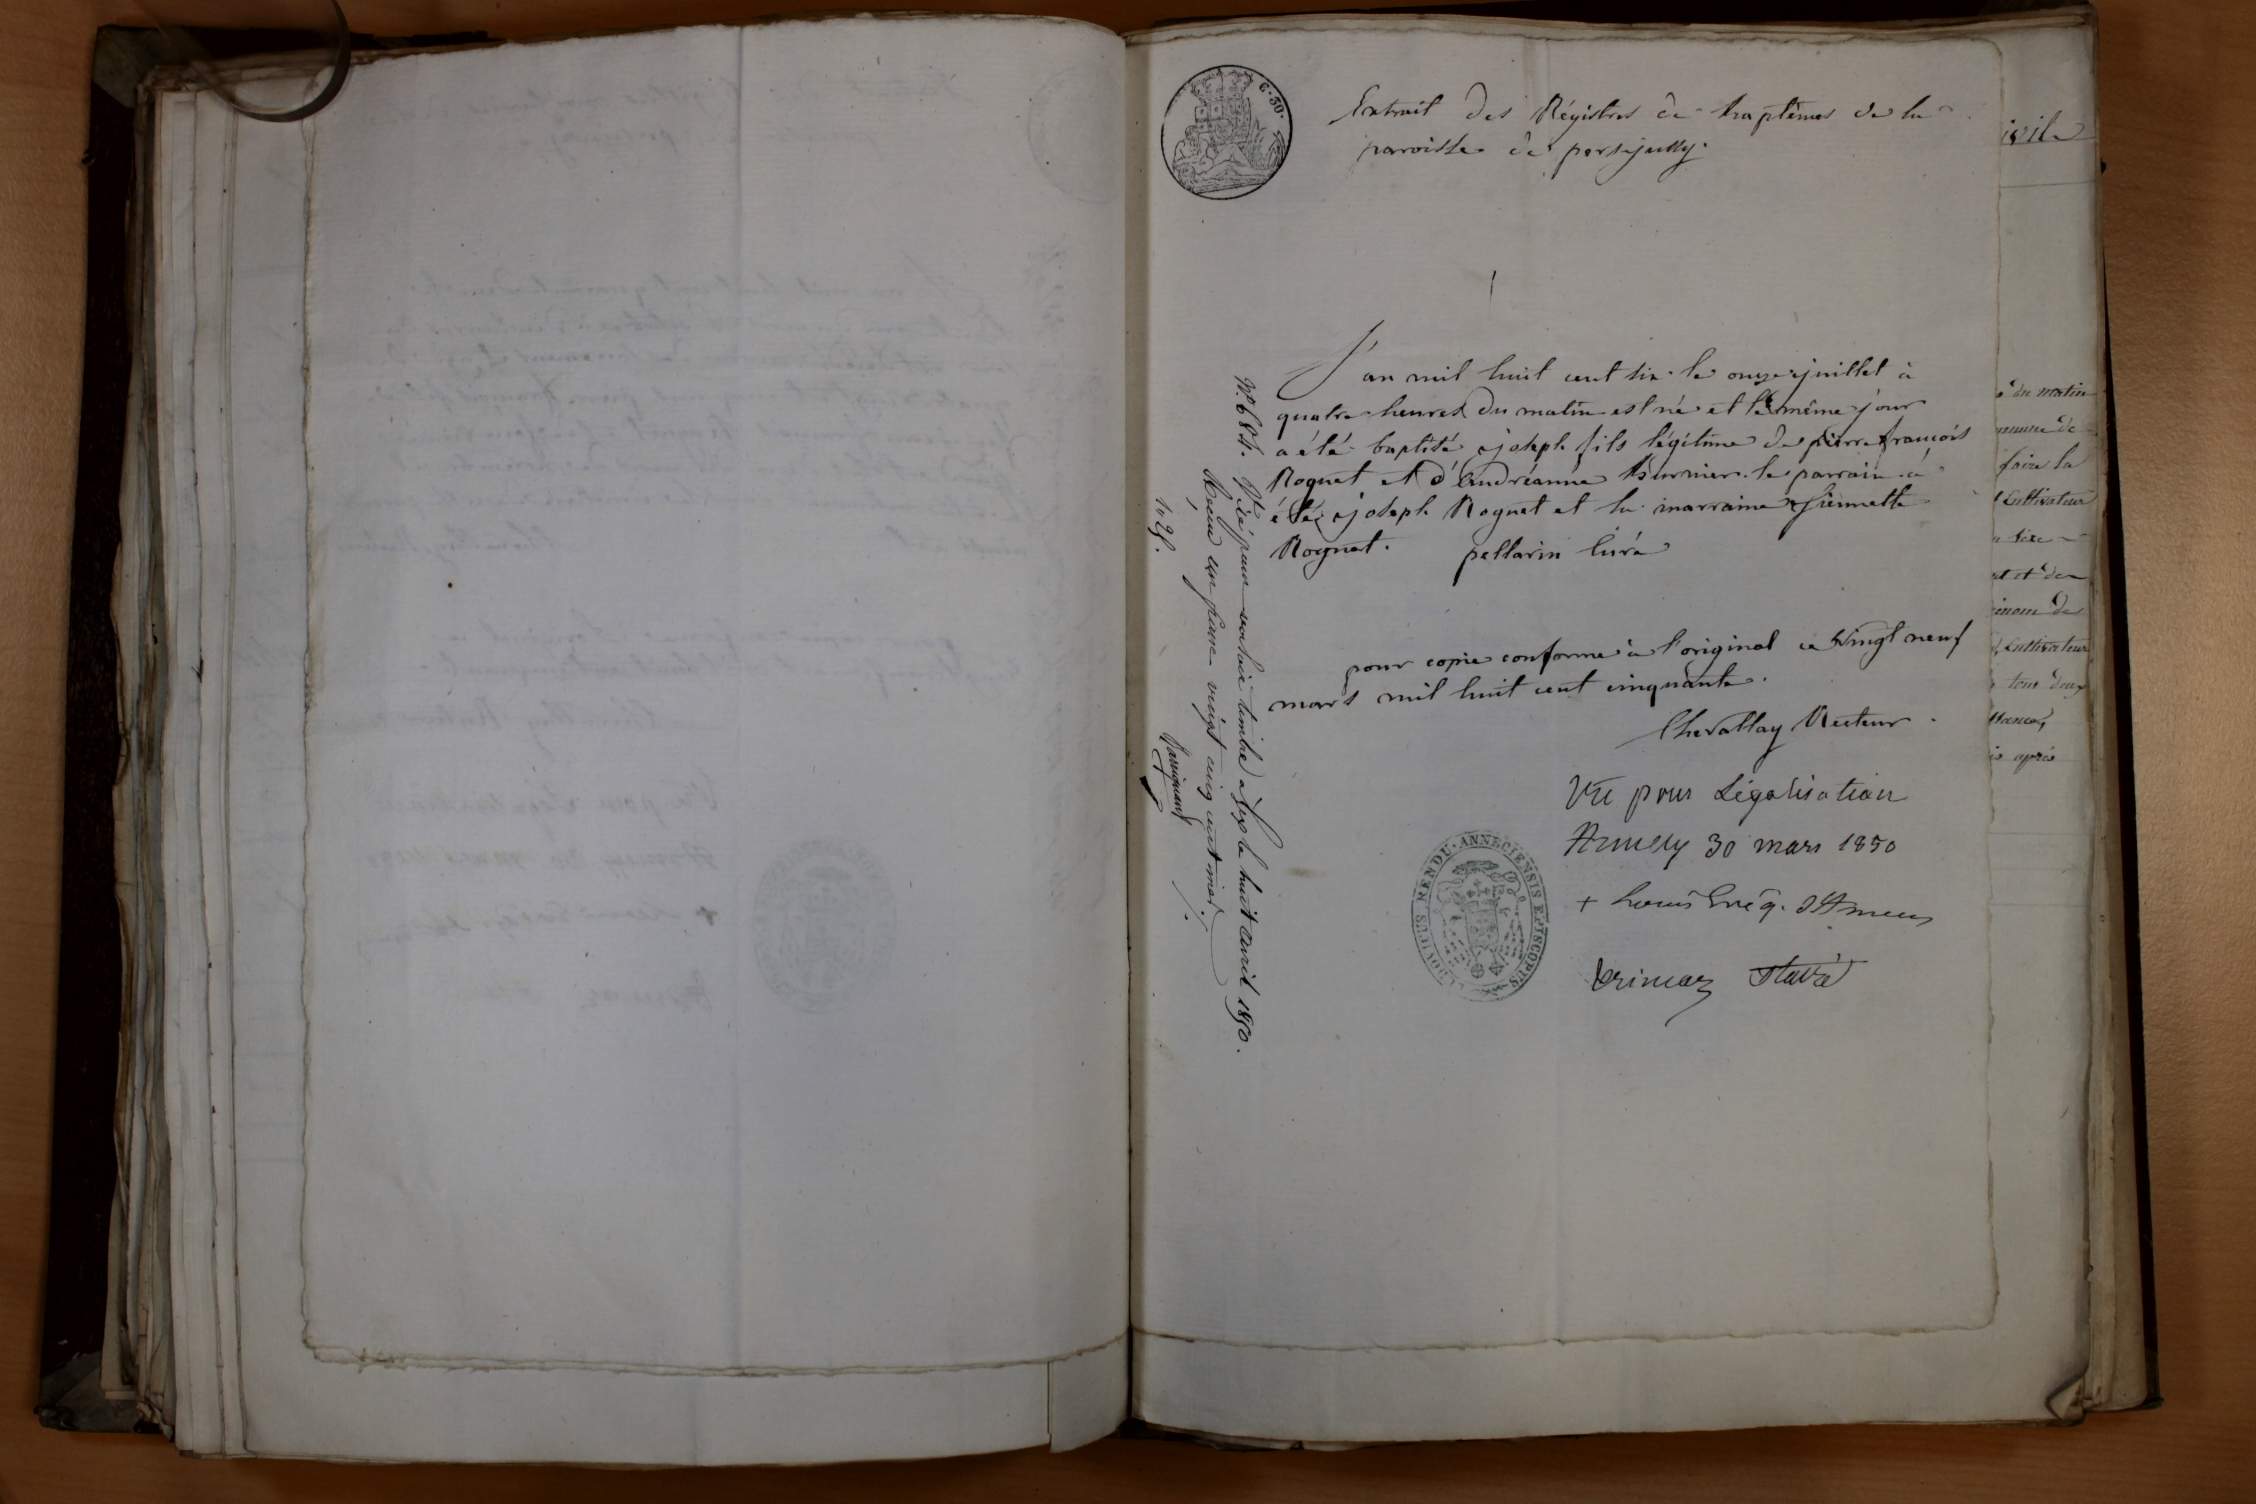 C. 30.
Extrait des Régistres de baptêmes de la
paroisse de persjussy.
L'an mil huit cent six le onze juillet à
quatre heures du matin est né et le même jour
a été baptisé joseph fils légitime de pierre françois
Roguet et d'andréanne burnier. le parrain a
été joseph Roguet et la marraine
Roguet. pellarin Curé
pour copie conforme à l'original ce vingt neuf
mars mil huit cent cinquante.
Chevallay Recteur.
Vu pour Légalisation
Annecy 30 mars 1850
+ Louis Evêq. d'Annecy
RENDU · ANNECIENSIS EPISCOPUS
N° 684. Visé pour valoir timbre à Gex le huit avril 1850.
Reçu un franc vingt cinq centimes
1 25.
ivile
e du matin
mmune de
faire la
Cultivateur
sexe
et de
énom de
Cultivateur
tous deux
ssance,
is après